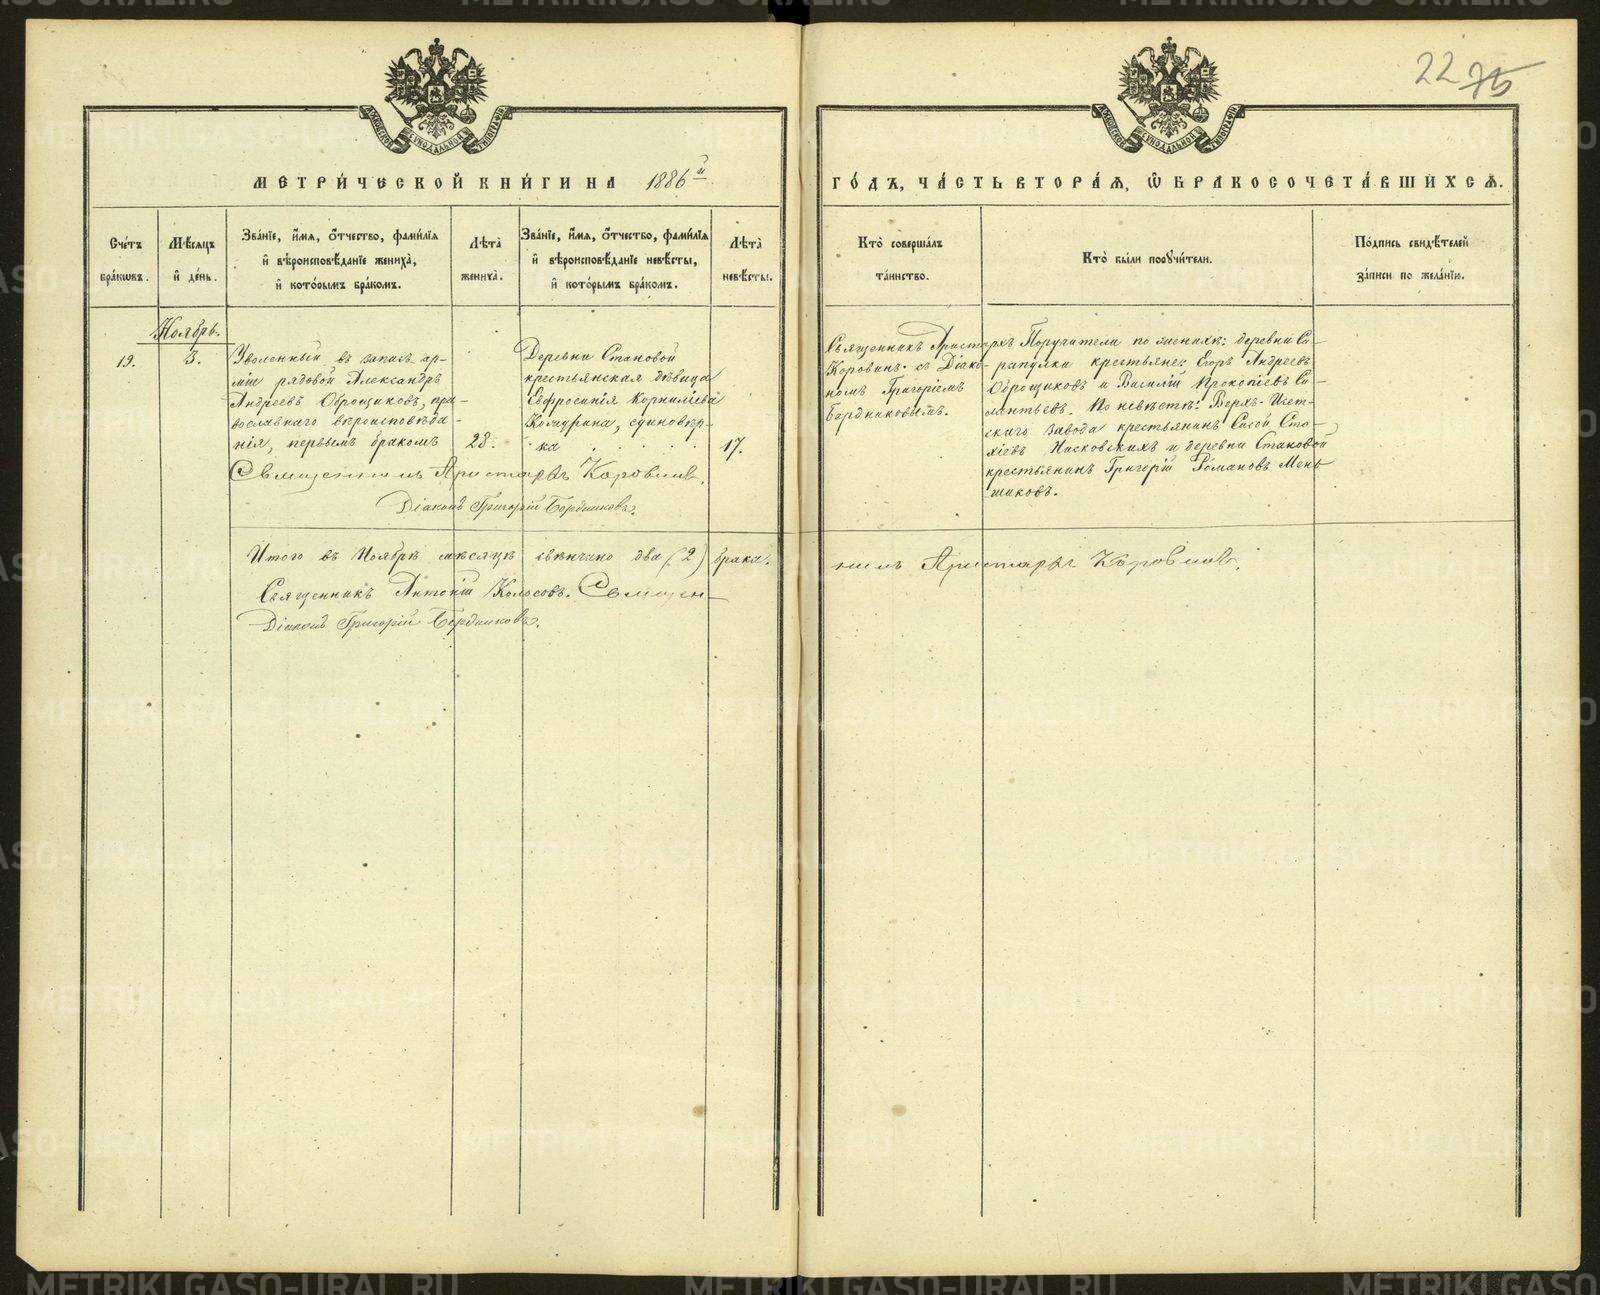 22 75
МОСКОВСКОЙ СѴНОДАЛЬНОЙ ТИПОГРАФІИ
МОСКОВСКОЙ СѴНОДАЛЬНОЙ ТИПОГРАФІИ
МЕТРИ́ЧЕСКОЙ КНИ́ГИ НА 1886й
ГО́ДЪ, ЧА́СТЬ ВТОРА́Ѧ, Ѽ БРАКОСОЧЕТА́ВШИХСѦ.
Сче́тъ бра́кѡвъ.
Мѣ́сяцъ и҆ де́нь.
Зва́нїе, и҆́мя, ѻ҆́тчество, фами́лїя и҆ вѣроисповѣ́данїе жениха̀, и҆ кото́рымъ бра́комъ.
Лѣ́та жениха̀.
Зва́нїе, и҆́мя, ѻ҆́тчество, фами́лїя и҆ вѣроисповѣ́данїе невѣ́сты, и҆ кото́рымъ бра́комъ.
Лѣ́та невѣ́сты.
Кто̀ соверша́лъ та́инство.
Кто̀ бы́ли поꙋчи́тели.
По́дпись свидѣ́телей за́писи по жела́нїю.
Ноябрь.
19.
3.
Уволенный въ запасъ ар-
міи рядовой Александръ
Андреевъ Оброщиковъ, пра-
вославнаго вѣроисповѣда-
нія, первымъ бракомъ
28.
Деревни Становой
крестьянская дѣвица
Евфросинія Корниліева
единовѣр-
ка
17.
Священникъ Аристархъ
Коровинъ съ Діако-
номъ Григоріемъ
Бердниковымъ.
Поручители по женихѣ: деревни Са-
рапулки крестьяне: Егоръ Андреевъ
Оброщиковъ и Василій Прокопіевъ Си-
лантьевъ. По невѣстѣ: Верхъ-Исет-
скаго завода крестьянинъ
и деревни Становой
крестьянинъ Григорій Романовъ Мень-
шиковъ.
Священникъ Аристархъ Коровинъ.
Діаконъ Григорій Бердниковъ.
Итого въ Ноябрѣ мѣсяцѣ свѣнчано два (2) брака.
Священникъ Антоній Колосовъ. Священ-
никъ Аристархъ Коровинъ.
Діаконъ Григорій Бердниковъ.
METRIKI.GASO-URAL.RU